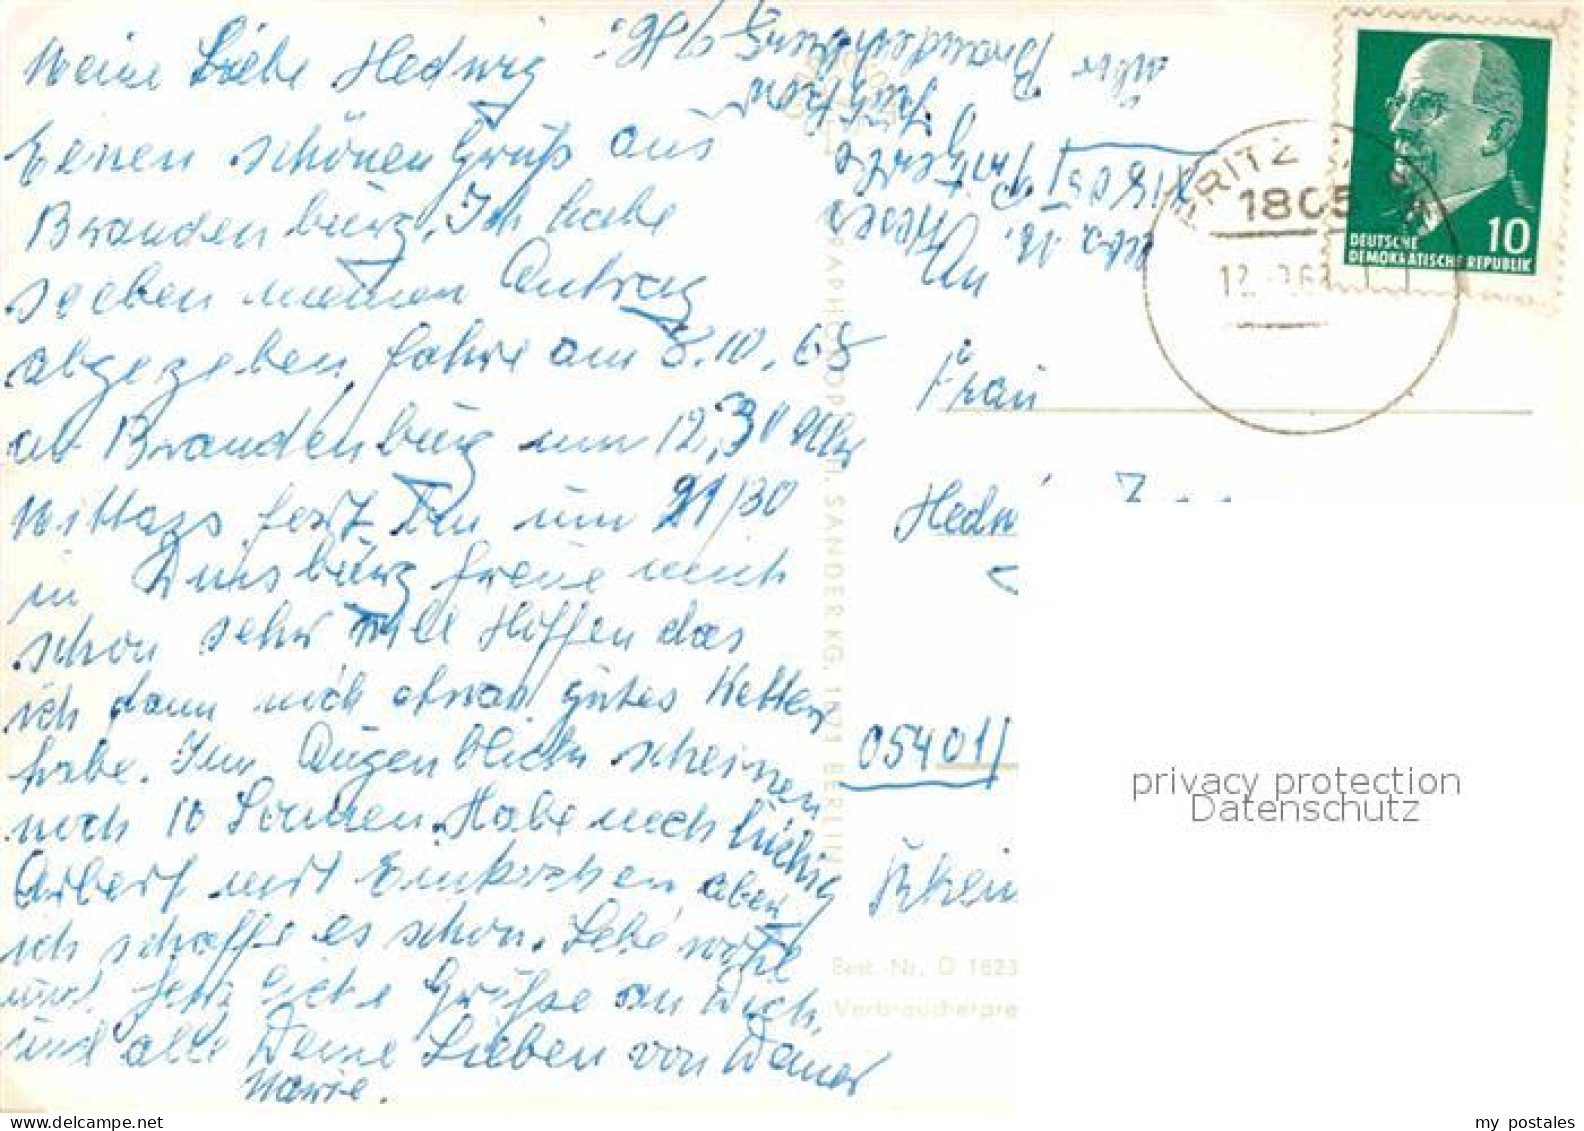 Meine Liebe Hedwig
Einen schönen Gruß aus
Brandenburg. Ich habe
soeben meinen Antrag
abgegeben, fahre am 8.10.68
ab Brandenburg um 12,30 Uhr
Mittags fort bin um 21/30
in Duisburg freue mich
schon sehr will Hoffen das
ich dann noch etwas gutes Wetter
habe. Im Augenblick scheinen
noch 10 Sonnen. Habe noch tüchtig
Arbeit mit Einkochen aber
ich schaffe es schon. Lebe wohl
und sei liebe Grüße an Dich,
und alle Deine Lieben von Deiner
Marie.
Brandenburg/H.
1805
12. 9.68
DEUTSCHE
DEMOKRATISCHE REPUBLIK
10
An
Frau
05401/
Rhein
H. SANDER KG. 1071 BERLIN
Best.-Nr. D 1823
Verbraucherpre
privacy protection
Datenschutz
my postales